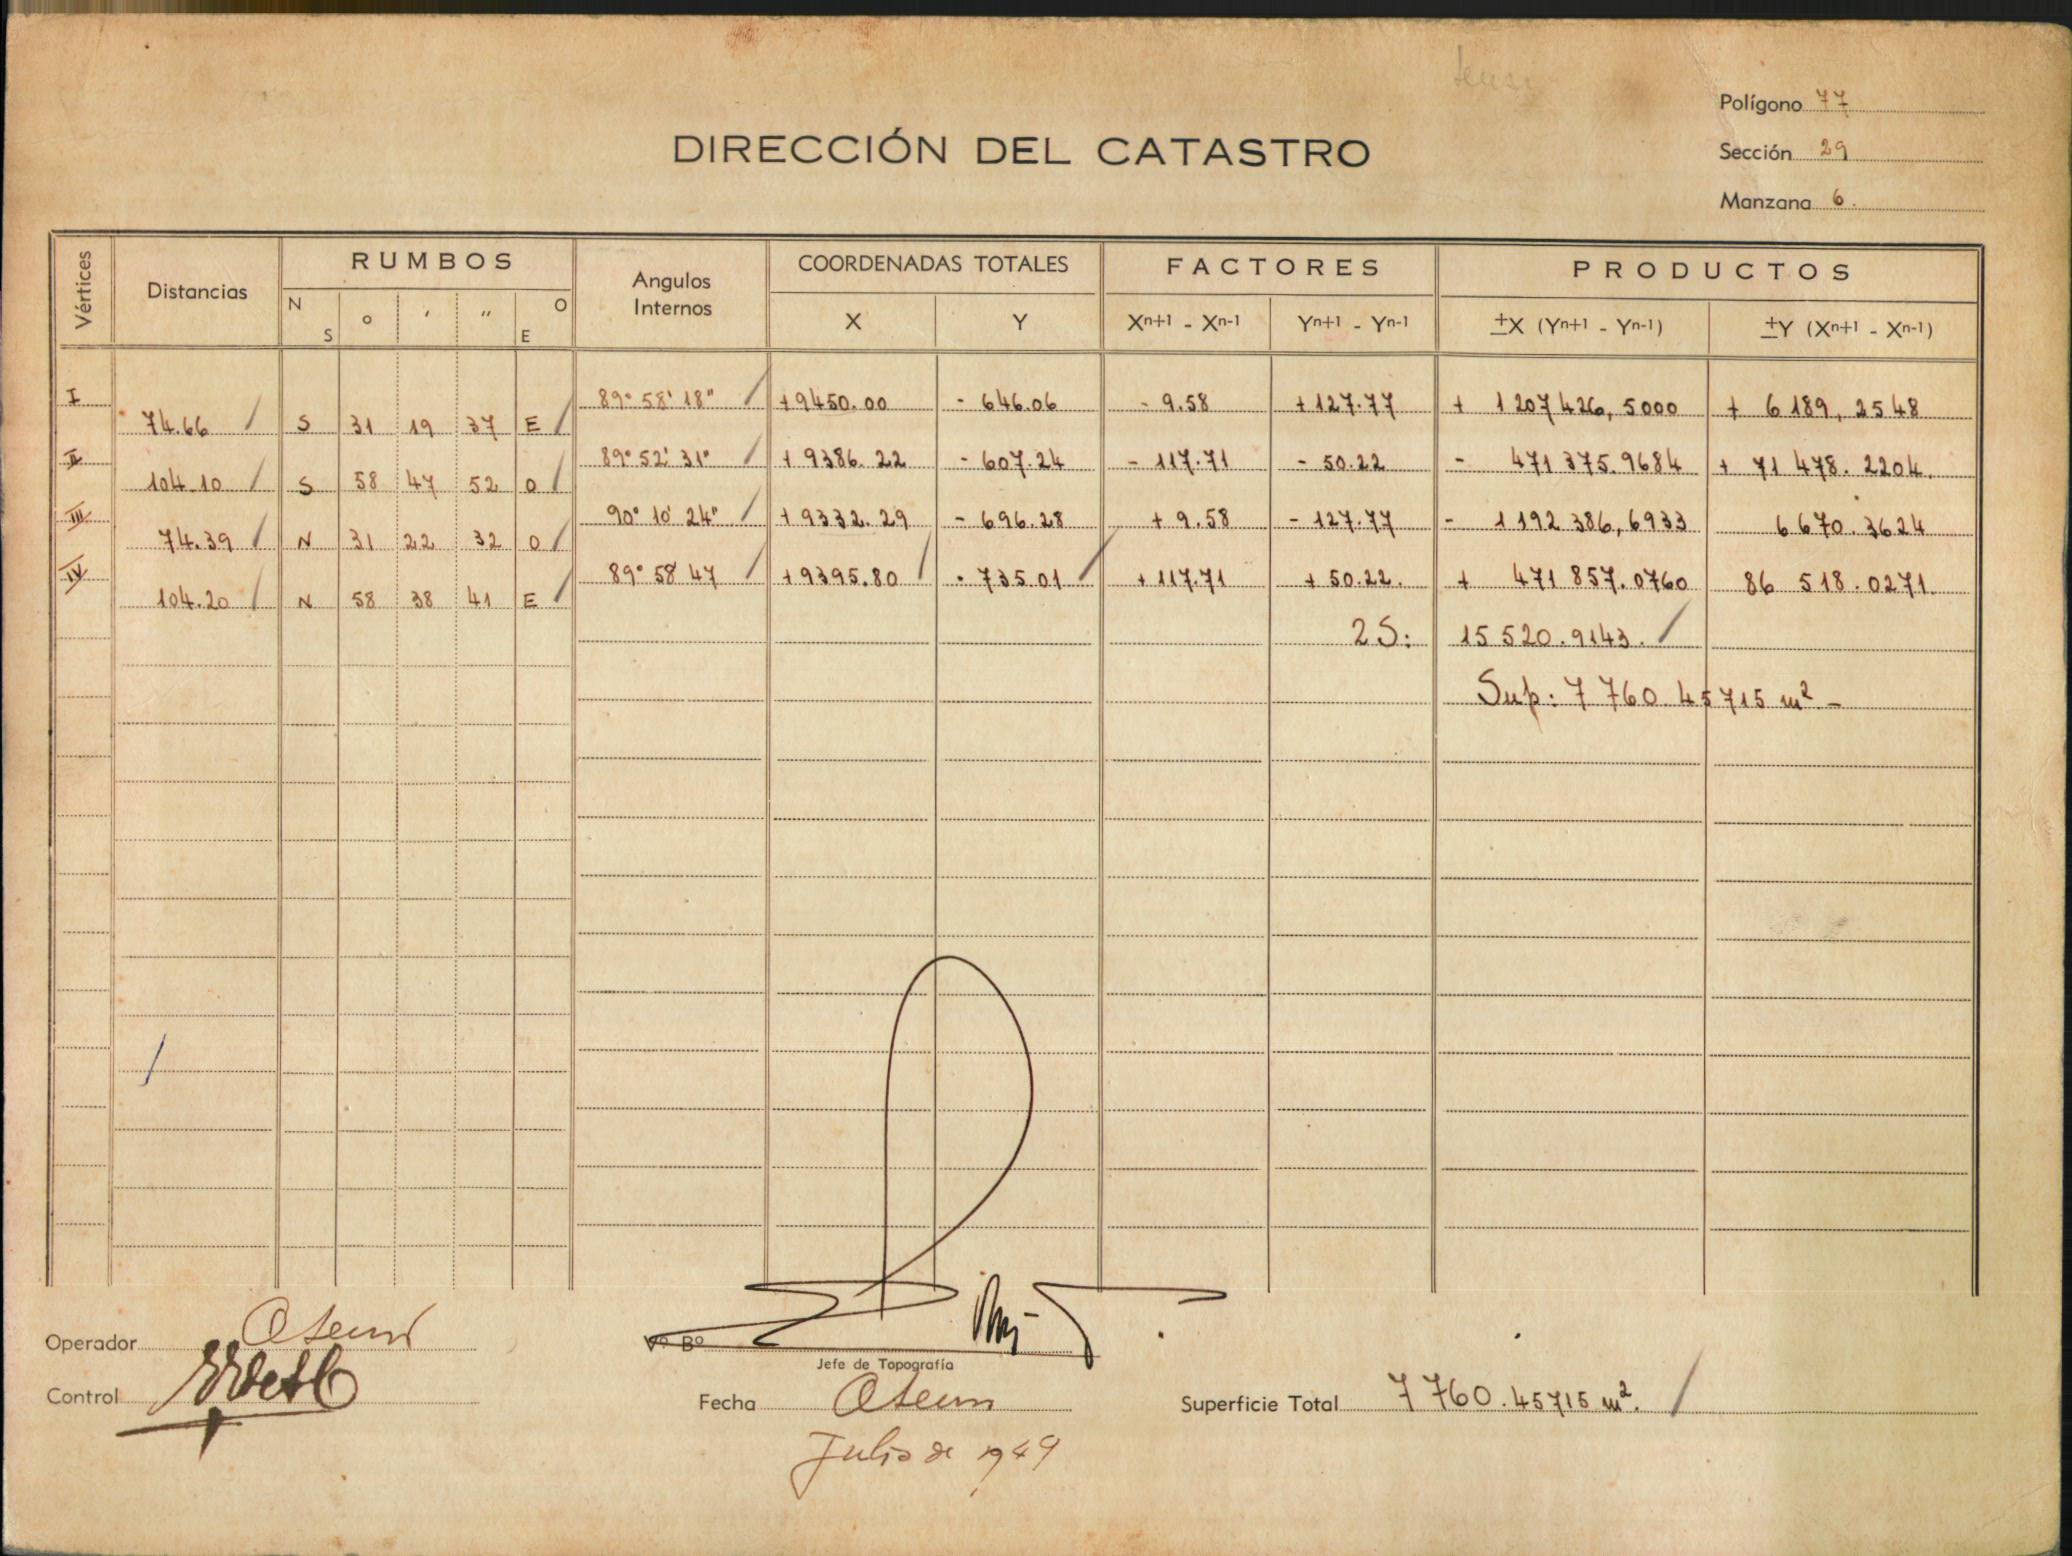 Polígono 77
DIRECCIÓN DEL CATASTRO
Sección 29
Manzana 6.
Vértices Distancias RUMBOS Angulos Internos COORDENADAS TOTALES FACTORES PRODUCTOS
N S ° ′ ″ E O X Y Xⁿ⁺¹ - Xⁿ⁻¹ Yⁿ⁺¹ - Yⁿ⁻¹ ±X (Yⁿ⁺¹ - Yⁿ⁻¹) ±Y (Xⁿ⁺¹ - Xⁿ⁻¹)
I 89° 58' 18" +9450.00 - 646.06 - 9.58 +127.77 + 1 207 426, 5000 + 6 189, 2548
74.66 S 31 19 37 E
II 89° 52' 31" + 9386.22 - 607.24 - 117.71 - 50.22 - 471 375.9684 + 71 478. 2204.
104.10 S 58 47 52 O
III 90° 10' 24" +9332.29 - 696.28 + 9.58 - 127.77 - 1 192 386, 6933 6 670.3624
74.39 N 31 22 32 O
IV 89° 58' 47 +9395.80 - 735.01 + 117.71 + 50.22. + 471 857.0760 86 518.0271.
104.20 N 58 38 41 E
2S: 15 520.9143.
Sup: 7 760.45715 m² -
Operador
Vº Bº
Jefe de Topografía
Control
Fecha
Julio de 1949
Superficie Total 7 760.45715 m².